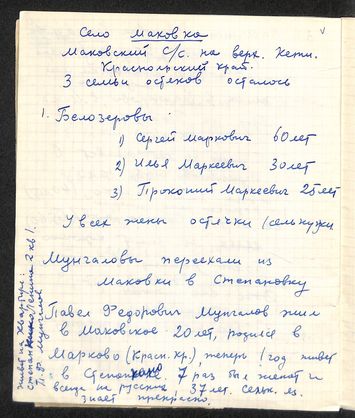 Село Маковка
Маковский с/с. на верх. Кети.
Красноярский край.
3 семьи остяков осталось
1. Белозеровы:
1) Сергей Маркович 60 лет
2) Илья Маркеевич 30 лет
3) Прокопий Маркеевич 25 лет
У всех жены остячки (селькупки
Мунгаловы переехали из
Маковки в Степановку
Павел Федорович Мунгалов жил
в Маковское 20 лет, родился в
Марково (Красн. кр.), теперь 1 год живет
в Степановке. 7 раз был женат и
всегда на русских. 37 лет. Сельк. яз.
знает прекрасно.
живет на квартире:
Степановка, Ленина 2 кв 1.
П.Ф. Мунгалов